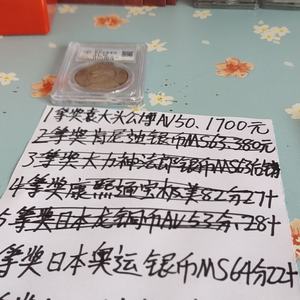 1等奖袁大头公博AV50.1700元
2等奖肯尼迪银币MS65.380元
3等奖大力神法郎银币MS63
4等奖康熙通宝极美82分27十
5等奖日本龙铜币AV53分28十
等奖日本奥运银币MS64分22十